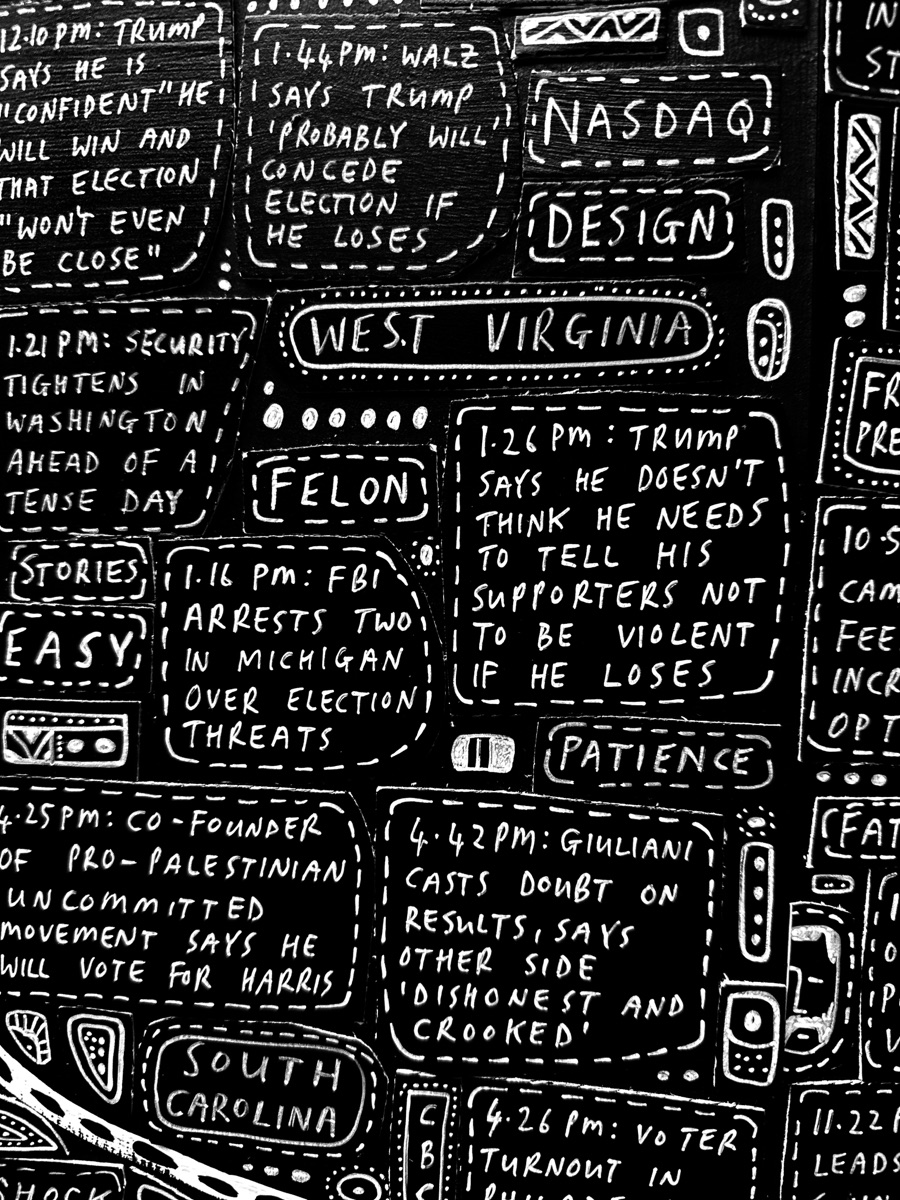 12.10 PM: TRUMP
SAYS HE IS
"CONFIDENT" HE
WILL WIN AND
THAT ELECTION
"WON'T EVEN
BE CLOSE"
1.44 PM: WALZ
SAYS TRUMP
'PROBABLY WILL'
CONCEDE
ELECTION IF
HE LOSES
NASDAQ
DESIGN
IN
ST
WEST VIRGINIA
1.21 PM: SECURITY
TIGHTENS IN
WASHINGTON
AHEAD OF A
TENSE DAY
FELON
1.26 PM: TRUMP
SAYS HE DOESN'T
THINK HE NEEDS
TO TELL HIS
SUPPORTERS NOT
TO BE VIOLENT
IF HE LOSES
FR
PRE
STORIES
EASY
1.16 PM: FBI
ARRESTS TWO
IN MICHIGAN
OVER ELECTION
THREATS
10.5
CAM
FEE
INCR
OPT
PATIENCE
4.25 PM: CO-FOUNDER
OF PRO-PALESTINIAN
UNCOMMITTED
MOVEMENT SAYS HE
WILL VOTE FOR HARRIS
4.42 PM: GIULIANI
CASTS DOUBT ON
RESULTS, SAYS
OTHER SIDE
'DISHONEST AND
CROOKED'
FAT
SOUTH
CAROLINA
CBS
4.26 PM: VOTER
TURNOUT IN
11.22 P
LEADS
SHOCK